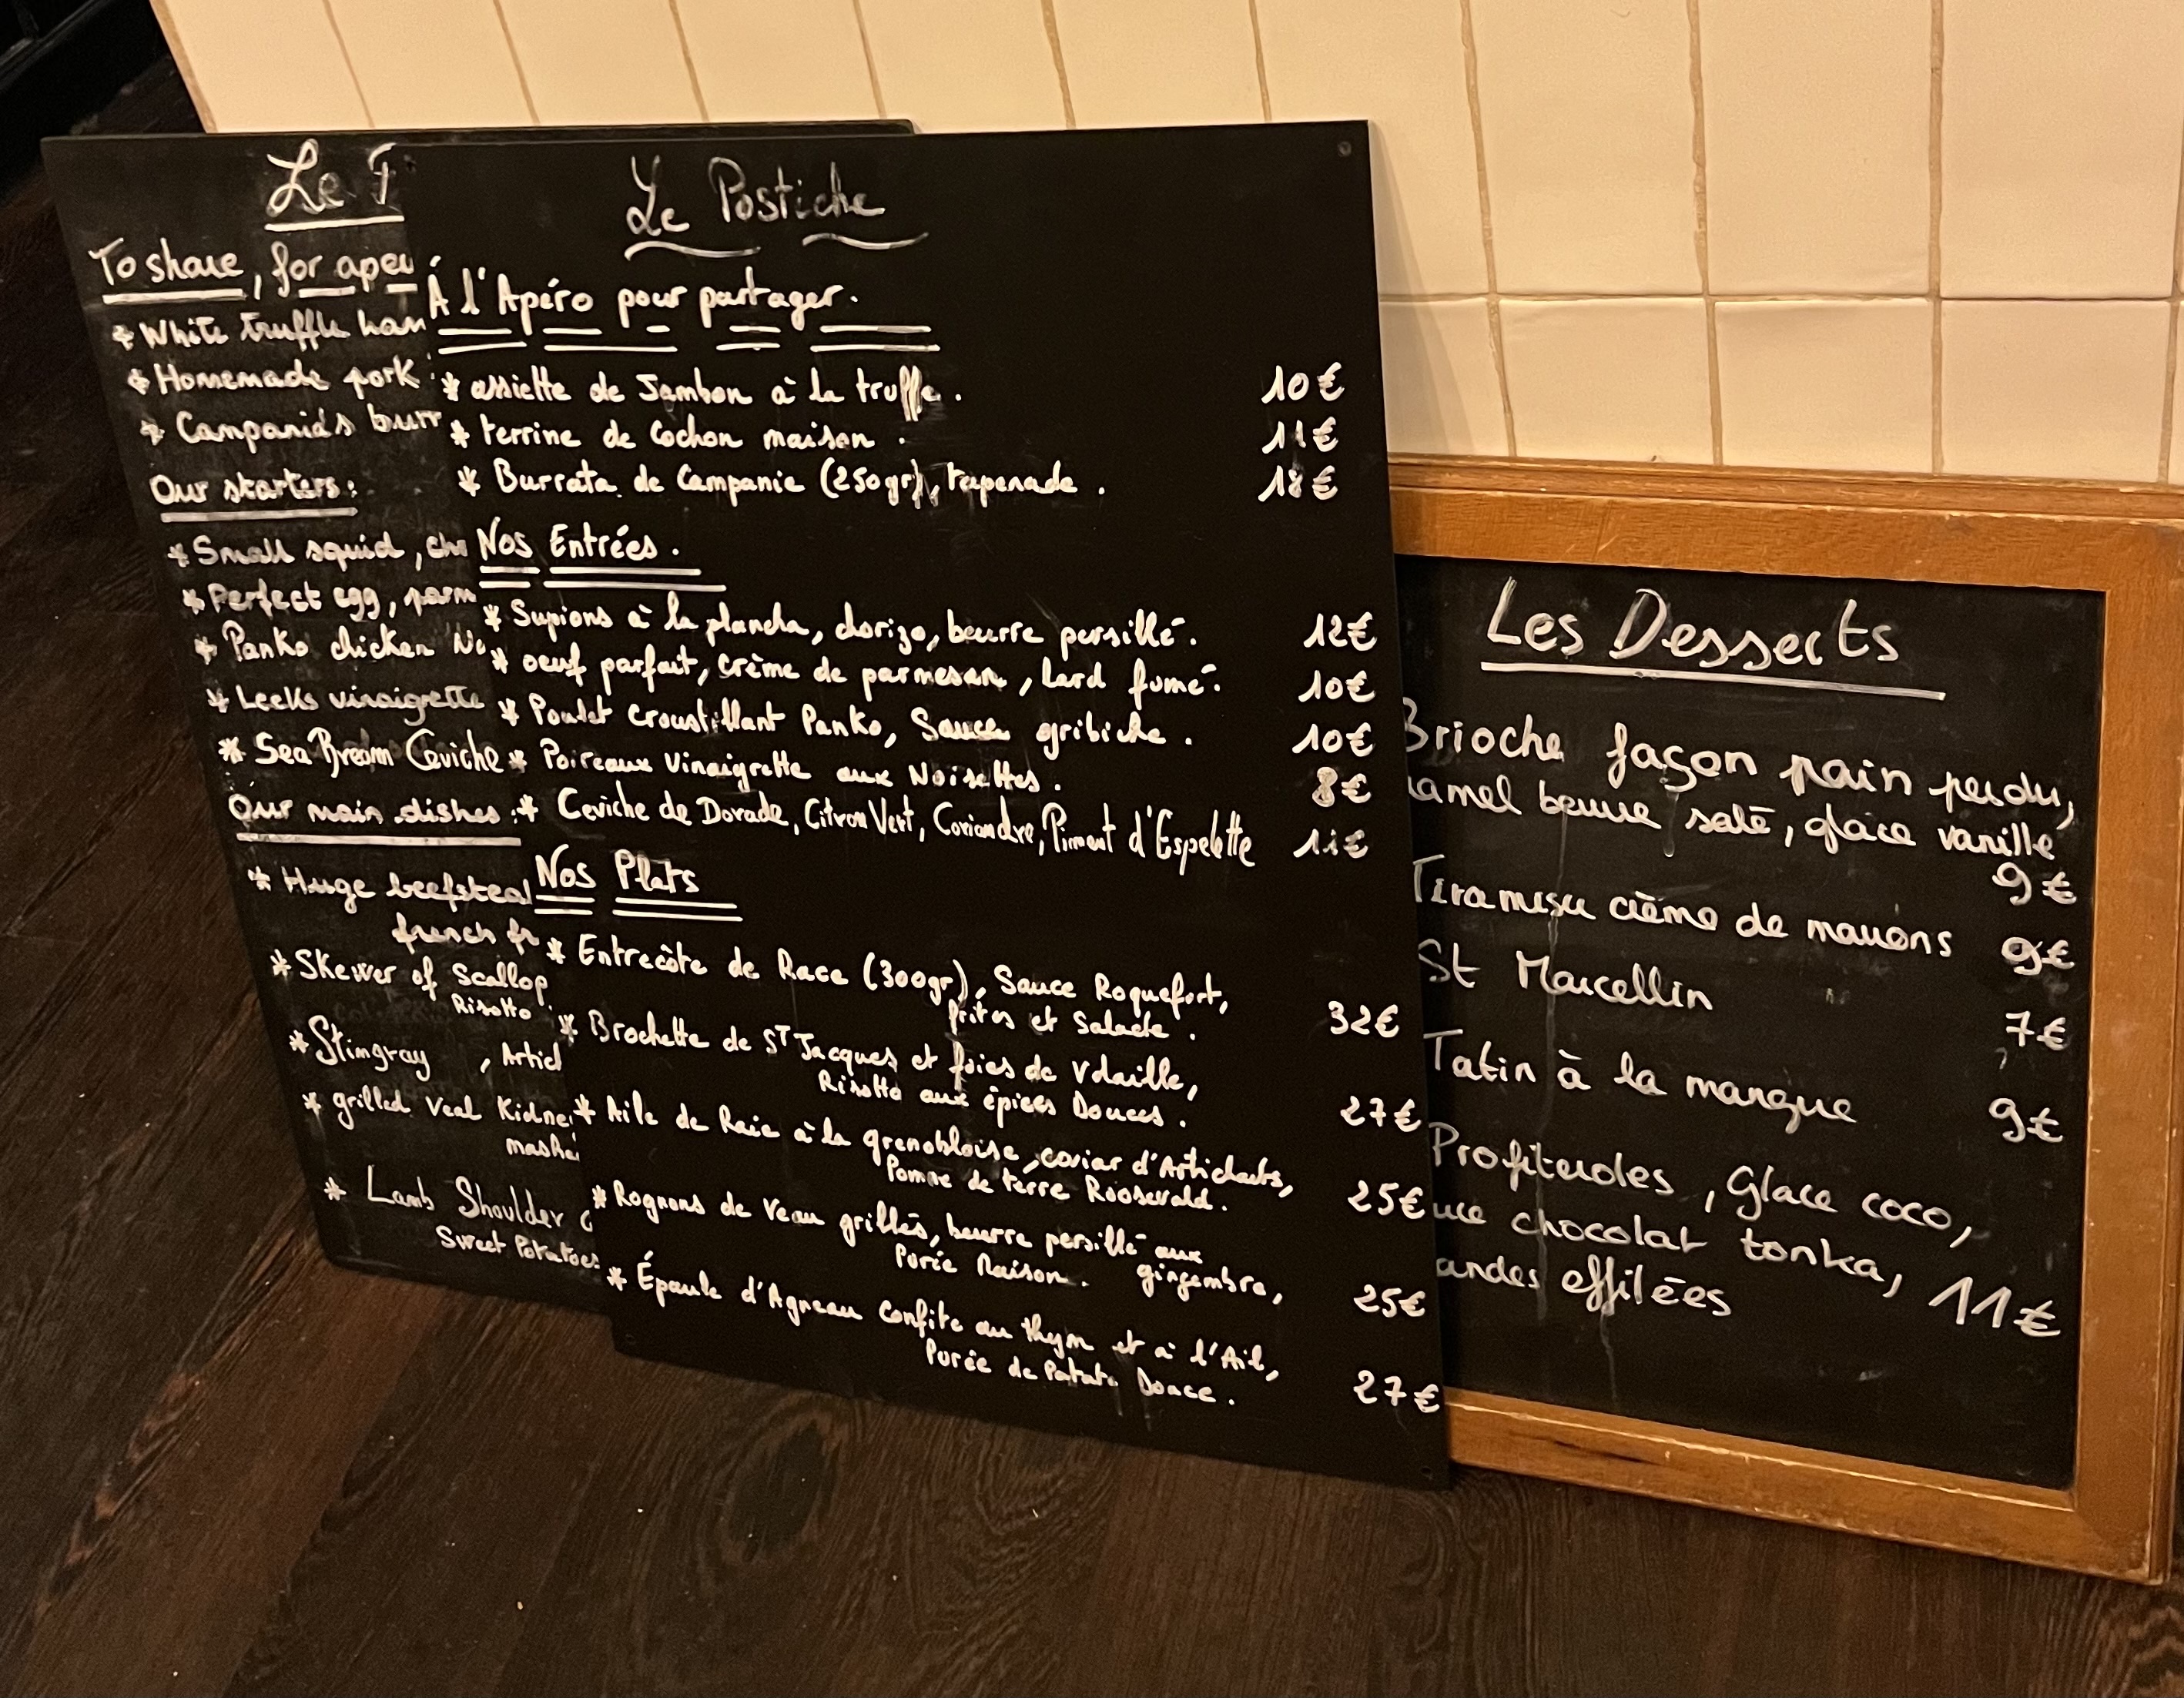 Le
To share, for
* White truffle
* Homemade pork
* Campania's
Our starters:
* Small squid,
* Perfect egg,
* Panko chicken
* Leeks vinaigrette
* Sea Bream Ceviche
Our main dishes:
* Huge
french
* Skewer of
Risotto
* Stingray,
* grilled Veal
* Lamb Shoulder
Sweet Potatoes
Le Postiche
Á l'Apéro pour partager.
* assiette de Jambon à la truffe. 10€
* terrine de Cochon maison. 11€
* Burrata de Campanie (250gr), tapenade. 18€
Nos Entrées.
* Supions à la plancha, chorizo, beurre persillé. 12€
* oeuf parfait, crème de parmesan, lard fumé. 10€
* Poulet Croustillant Panko, Sauce gribiche. 10€
* Poireaux Vinaigrette aux Noisettes. 8€
* Ceviche de Dorade, Citron Vert, Coriandre, Piment d'Espelette 11€
Nos Plats
* Entrecôte de Race (300gr), Sauce Roquefort,
frites et Salade. 32€
* Brochette de St Jacques et foies de Volaille,
Risotto aux épices Douces. 27€
* Aile de Raie à la grenobloise, caviar d'Artichauts,
Pomme de terre Roosevald. 25€
* Rognons de Veau grillés, beurre persillé aux
gingembre,
Purée Maison. 25€
* Épaule d'Agneau Confite au thym et à l'Ail,
Purée de Patate Douce. 27€
Les Desserts
Brioche façon pain perdu,
beurre salé, glace vanille
9€
Tiramisu crème de marrons 9€
St Marcellin 7€
Tatin à la mangue 9€
Profiteroles, Glace coco,
chocolat tonka,
effilées 11€